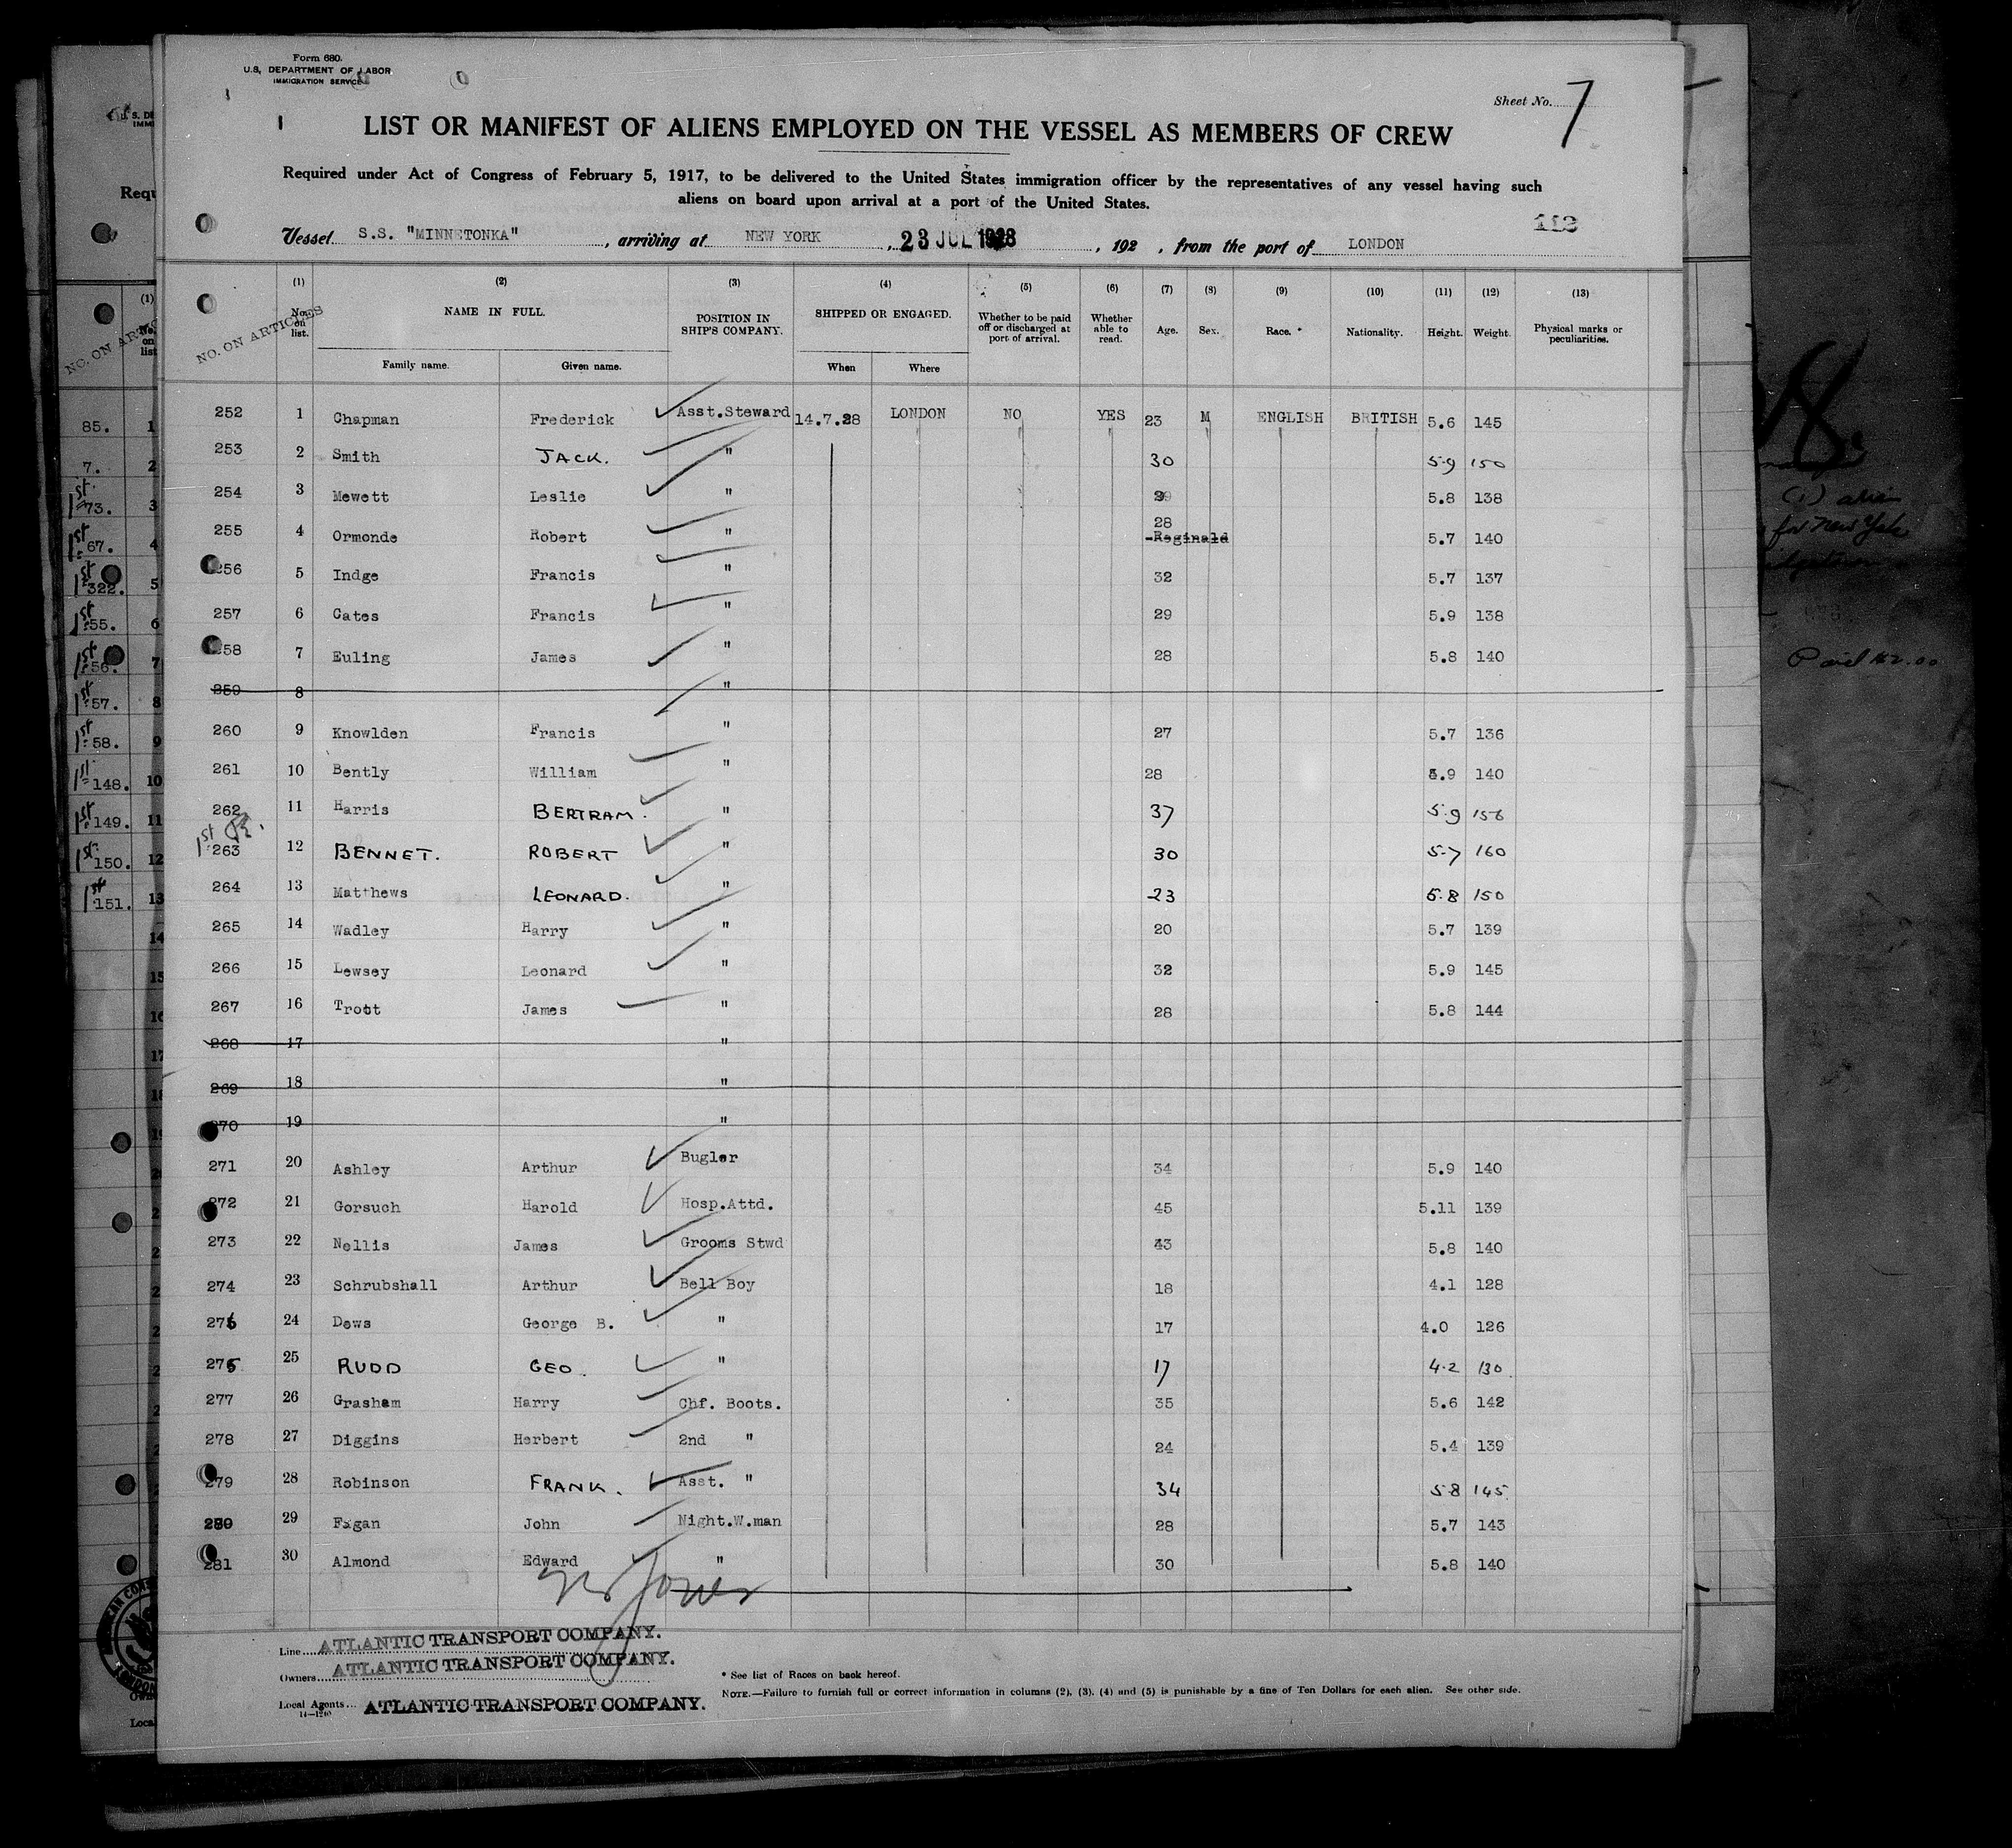 Form 680.
U.S. DEPARTMENT OF LABOR
IMMIGRATION SERVICE
Sheet No. 7
LIST OR MANIFEST OF ALIENS EMPLOYED ON THE VESSEL AS MEMBERS OF CREW
Required under Act of Congress of February 5, 1917, to be delivered to the United States immigration officer by the representatives of any vessel having such
aliens on board upon arrival at a port of the United States.
112
Vessel S.S. "MINNETONKA", arriving at NEW YORK, 23 JUL 1928, 192 , from the port of LONDON
(1) (2) (3) (4) (5) (6) (7) (8) (9) (10) (11) (12) (13)
NO. ON ARTICLES No. on list. NAME IN FULL. POSITION IN SHIP'S COMPANY. SHIPPED OR ENGAGED. Whether to be paid off or discharged at port of arrival. Whether able to read. Age. Sex. Race. * Nationality. Height. Weight. Physical marks or peculiarities.
Family name. Given name. When Where
252 1 Chapman Frederick Asst.Steward 14.7.28 LONDON NO YES 23 M ENGLISH BRITISH 5.6 145
253 2 Smith JACK. " 30 5-9 150
254 3 Mewett Leslie " 5.8 138
28
255 4 Ormonde Robert " Reginald 5.7 140
256 5 Indge Francis " 32 5.7 137
257 6 Gates Francis " 29 5.9 138
258 7 Euling James " 28 5.8 140
259 8 "
260 9 Knowlden Francis " 27 5.7 136
261 10 Bently William " 28 5.9 140
262 11 Harris BERTRAM. " 37 5-9 156
1st
263 12 BENNET. ROBERT " 30 5-7 160
264 13 Matthews LEONARD. " 23 5.8 150
265 14 Wadley Harry " 20 5.7 139
266 15 Lewsey Leonard " 32 5.9 145
267 16 Trott James " 28 5.8 144
268 17 "
269 18 "
270 19 "
271 20 Ashley Arthur Bugler 34 5.9 140
272 21 Gorsuch Harold Hosp.Attd. 45 5.11 139
273 22 Nellis James Grooms Stwd 43 5.8 140
274 23 Schrubshall Arthur Bell Boy 18 4.1 128
276 24 Dews George B. " 17 4.0 126
275 25 RUDD GEO. " 17 4-2 130
277 26 Grasham Harry Chf. Boots. 35 5.6 142
278 27 Diggins Herbert 2nd " 24 5.4 139
279 28 Robinson FRANK. Asst. " 34 5-8 145
280 29 Fagan John Night.W.man 28 5.7 143
281 30 Almond Edward " 30 5.8 140
Jones
Line ATLANTIC TRANSPORT COMPANY.
Owners ATLANTIC TRANSPORT COMPANY.
Local Agents ATLANTIC TRANSPORT COMPANY.
14—1240
* See list of Races on back hereof.
NOTE.—Failure to furnish full or correct information in columns (2), (3), (4) and (5) is punishable by a fine of Ten Dollars for each alien. See other side.
Requ
NO. ON ARTIC
(1)
No. on list
85. 1
7. 2
1st 73. 3
1st 67. 4
1st 322. 5
1st 55. 6
1st 56. 7
1st 57. 8
1st 58. 9
1st 148. 10
1st 149. 11
1st 150. 12
1st 151. 13
14
15
(1) alien
for New York
Paid $2.00